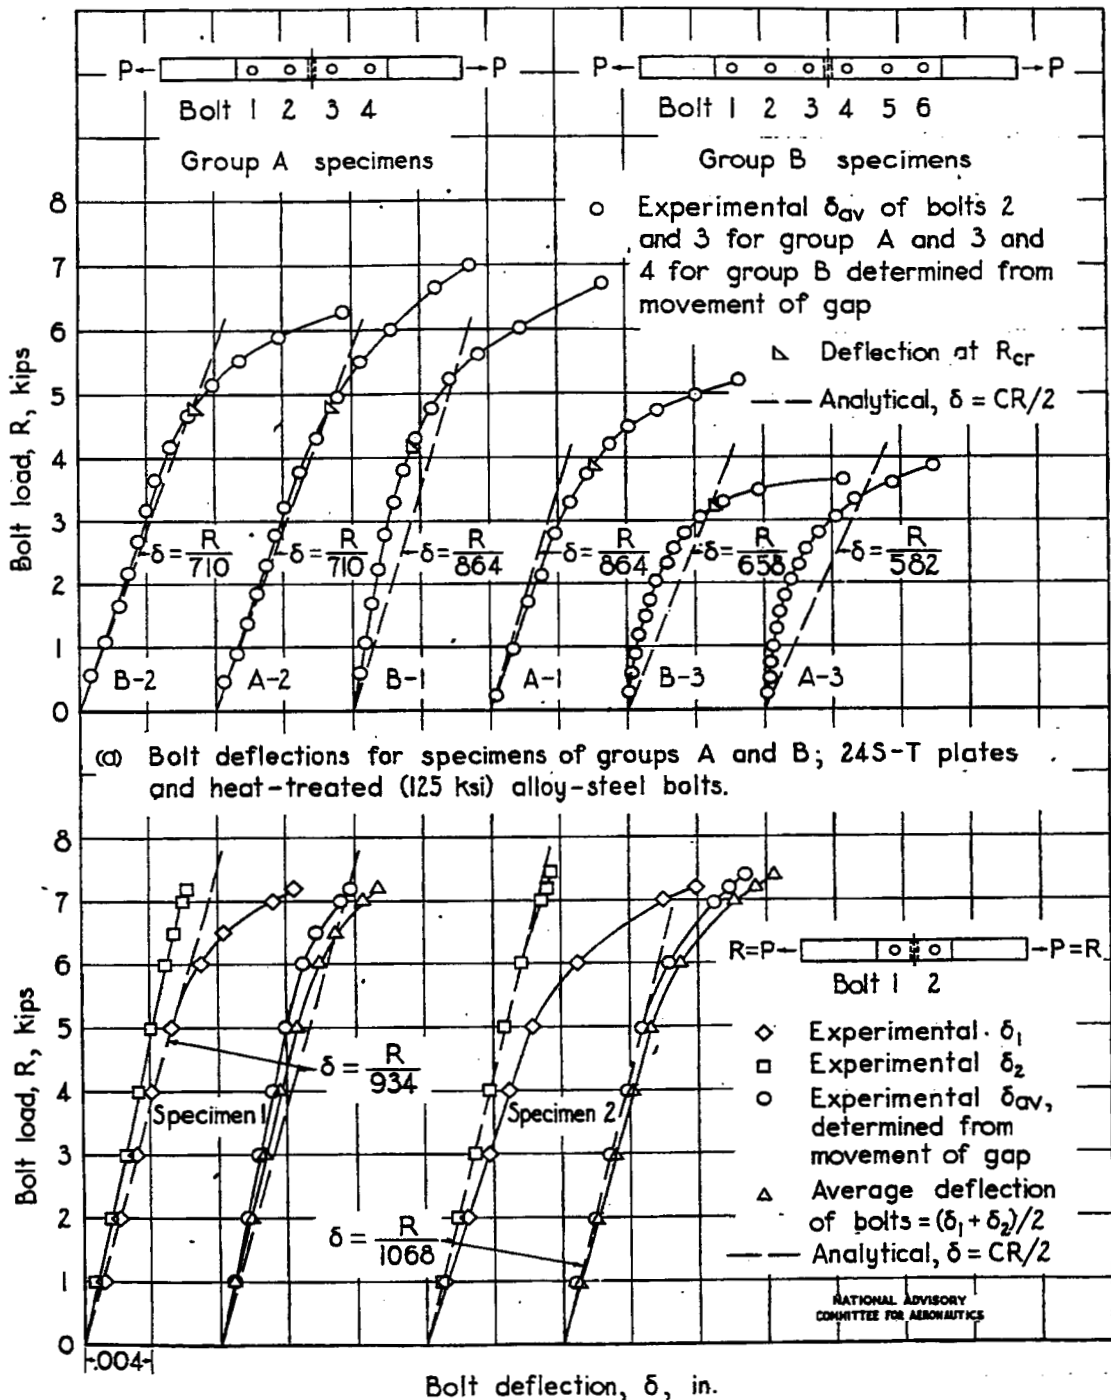 P
P
Bolt 1 2 3 4
Group A specimens
P
P
Bolt 1 2 3 4 5 6
Group B specimens
Experimental δav of bolts 2
and 3 for group A and 3 and
4 for group B determined from
movement of gap
Deflection at Rcr
Analytical, δ = CR/2
Bolt load, R, kips
8
7
6
5
4
3
2
1
0
δ = R/710
δ = R/710
δ = R/864
δ = R/864
δ = R/658
δ = R/582
B-2
A-2
B-1
A-1
B-3
A-3
(a) Bolt deflections for specimens of groups A and B; 24S-T plates
and heat-treated (125 ksi) alloy-steel bolts.
Bolt load, R, kips
8
7
6
5
4
3
2
1
0
R=P
P=R
Bolt 1 2
δ = R/934
Specimen 1
Specimen 2
δ = R/1068
Experimental δ1
Experimental δ2
Experimental δav,
determined from
movement of gap
Average deflection
of bolts = (δ1 + δ2)/2
Analytical, δ = CR/2
NATIONAL ADVISORY
COMMITTEE FOR AERONAUTICS
.004
Bolt deflection, δ, in.